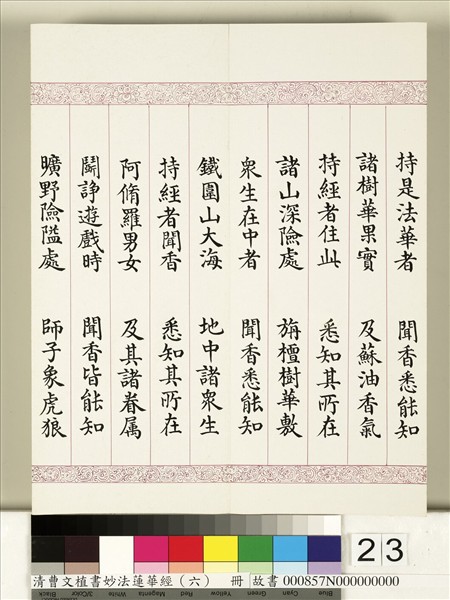 持是法華者　聞香悉能知
諸樹華果實　及蘇油香氣
持經者住此　悉知其所在
諸山深險處　栴檀樹華敷
衆生在中者　聞香悉能知
鐵圍山大海　地中諸衆生
持經者聞香　悉知其所在
阿脩羅男女　及其諸眷属
鬪諍遊戲時　聞香皆能知
曠野險隘處　師子象虎狼
23
Black 3/Color White Magenta Red Yellow Green Cyan Blue
清曹文植書妙法蓮華經（六）　冊　故書 000857N000000000